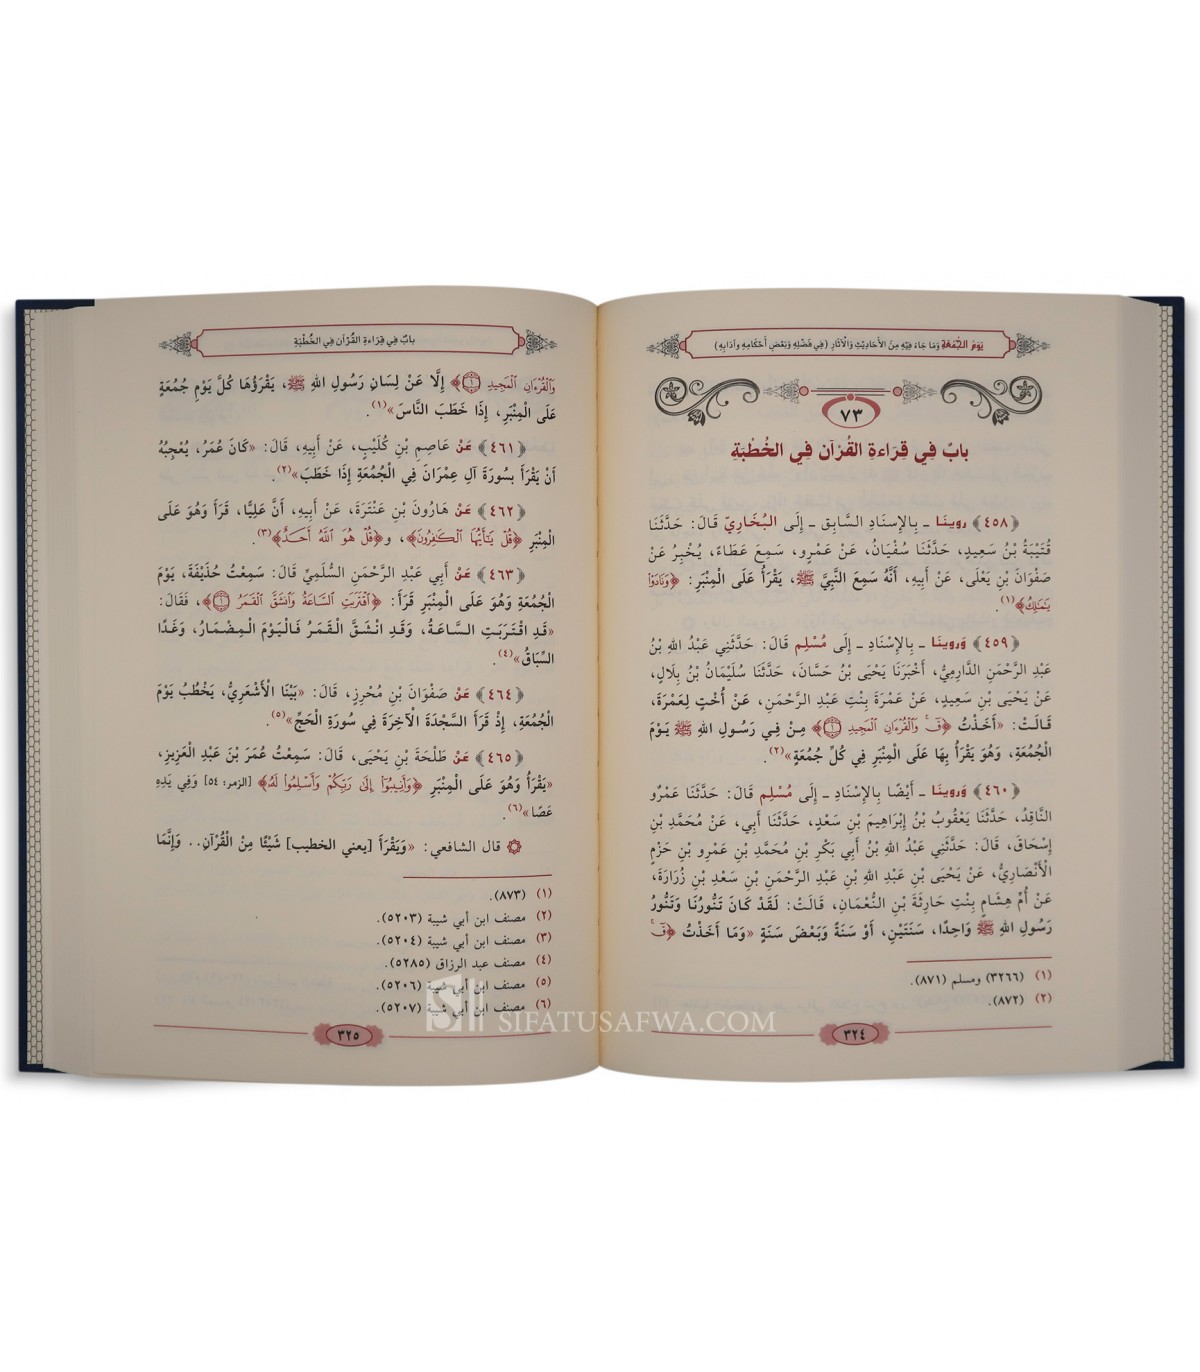 يَوْمُ الجُمُعَةِ وَمَا جَاءَ فِيْهِ مِنَ الأَحَادِيْثِ وَالآثَارِ (فِي فَضْلِهِ وَبَعْضِ أَحْكَامِهِ وَآدَابِهِ)
٧٣
بابٌ فِي قِرَاءةِ القُرْآن فِي الخُطْبَة
﴿٤٥٨﴾ روينَـا ـ بِالإسنَادِ السَّابِق ـ إِلَى البُخَارِيّ قَالَ: حَدَّثَنَا
قُتَيْبَةُ بْنُ سَعِيدٍ، حَدَّثَنَا سُفْيَانُ، عَنْ عَمْرٍو، سَمِعَ عَطَاءً، يُخْبِرُ عَنْ
صَفْوَانَ بْنِ يَعْلَى، عَنْ أَبِيهِ، أَنَّهُ سَمِعَ النَّبِيَّ ﷺ، يَقْرَأُ عَلَى الْمِنْبَرِ: ﴿وَنَادَوْا
يَـٰمَـٰلِكُ﴾(١).
﴿٤٥٩﴾ وَروينَـا ـ بِـالإِسْنَادِ ـ إِلَى مُسْلِم قَالَ: حَدَّثَنِي عَبْدُ اللهِ بْنُ
عَبْدِ الرَّحْمَنِ الدَّارِمِيُّ، أَخْبَرَنَا يَحْيَى بْنُ حَسَّانَ، حَدَّثَنَا سُلَيْمَانُ بْنُ بِلَالٍ،
عَنْ يَحْيَى بْنِ سَعِيدٍ، عَنْ عَمْرَةَ بِنْتِ عَبْدِ الرَّحْمَنِ، عَنْ أُخْتٍ لِعَمْرَةَ،
قَالَتْ: «أَخَذْتُ ﴿قٓ ۚ وَٱلْقُرْءَانِ ٱلْمَجِيدِ ١﴾ مِنْ فِي رَسُولِ اللهِ ﷺ يَوْمَ
الْجُمُعَةِ، وَهُوَ يَقْرَأُ بِهَا عَلَى الْمِنْبَرِ فِي كُلِّ جُمُعَةٍ»(٢).
﴿٤٦٠﴾ وَروينَـا ـ أَيْضًا بِالإِسْنَادِ ـ إِلَى مُسْلِم قَالَ: حَدَّثَنَا عَمْرٌو
النَّاقِدُ، حَدَّثَنَا يَعْقُوبُ بْنُ إِبْرَاهِيمَ بْنِ سَعْدٍ، حَدَّثَنَا أَبِي، عَنْ مُحَمَّدِ بْنِ
إِسْحَاقَ، قَالَ: حَدَّثَنِي عَبْدُ اللهِ بْنُ أَبِي بَكْرِ بْنِ مُحَمَّدِ بْنِ عَمْرِو بْنِ حَزْمٍ
الْأَنْصَارِيُّ، عَنْ يَحْيَى بْنِ عَبْدِ اللهِ بْنِ عَبْدِ الرَّحْمَنِ بْنِ سَعْدِ بْنِ زُرَارَةَ،
عَنْ أُمِّ هِشَامٍ بِنْتِ حَارِثَةَ بْنِ النُّعْمَانِ، قَالَتْ: لَقَدْ كَانَ تَنُّورُنَا وَتَنُّورُ
رَسُولِ اللهِ ﷺ وَاحِدًا، سَنَتَيْنِ، أَوْ سَنَةً وَبَعْضَ سَنَةٍ «وَمَا أَخَذْتُ ﴿قٓ ۚ
(١) (٣٢٦٦) ومسلم (٨٧١).
(٢) (٨٧٢).
٣٢٤
بابٌ فِي قِرَاءةِ القُرْآن فِي الخُطْبَةِ
وَٱلْقُرْءَانِ ٱلْمَجِيدِ ١﴾ إِلَّا عَنْ لِسَانِ رَسُولِ اللهِ ﷺ، يَقْرَؤُهَا كُلَّ يَوْمِ جُمُعَةٍ
عَلَى الْمِنْبَرِ، إِذَا خَطَبَ النَّاسَ»(١).
﴿٤٦١﴾ عَنْ عَاصِمِ بْنِ كُلَيْبٍ، عَنْ أَبِيهِ، قَالَ: «كَانَ عُمَرُ، يُعْجِبُهُ
أَنْ يَقْرَأَ بسُورَةَ آلِ عِمْرَانَ فِي الْجُمُعَةِ إِذَا خَطَبَ»(٢).
﴿٤٦٢﴾ عَنْ هَارُونَ بْنِ عَنْتَرَةَ، عَنْ أَبِيهِ، أَنَّ عَلِيًّا، قَرَأَ وَهُوَ عَلَى
الْمِنْبَرِ ﴿قُلْ يَـٰٓأَيُّهَا ٱلْكَـٰفِرُونَ﴾، و﴿قُلْ هُوَ ٱللَّهُ أَحَدٌ﴾(٣).
﴿٤٦٣﴾ عَنْ أَبِي عَبْدِ الرَّحْمَنِ السُّلَمِيِّ قَالَ: سَمِعْتُ حُذَيْفَةَ، يَوْمَ
الْجُمُعَةِ وَهُوَ عَلَى الْمِنْبَرِ قَرَأَ: ﴿ٱقْتَرَبَتِ ٱلسَّاعَةُ وَٱنشَقَّ ٱلْقَمَرُ ١﴾، فَقَالَ:
«قَدِ اقْتَرَبَتِ السَّاعَةُ، وَقَدِ انْشَقَّ الْقَمَرُ فَالْيَوْمَ الْمِضْمَارُ، وَغَدًا
السِّبَاقُ»(٤).
﴿٤٦٤﴾ عَنْ صَفْوَانَ بْنِ مُحْرِزٍ، قَالَ: «بَيْنَا الْأَشْعَرِيُّ، يَخْطُبُ يَوْمَ
الْجُمُعَةِ، إِذْ قَرَأَ السَّجْدَةَ الْآخِرَةَ فِي سُورَةِ الْحَجِّ»(٥).
﴿٤٦٥﴾ عَنْ طَلْحَةَ بْنِ يَحْيَى، قَالَ: سَمِعْتُ عُمَرَ بْنَ عَبْدِ الْعَزِيزِ،
«يَقْرَأُ وَهُوَ عَلَى الْمِنْبَرِ ﴿وَأَنِيبُوٓا۟ إِلَىٰ رَبِّكُمْ وَأَسْلِمُوا۟ لَهُۥ﴾ [الزمر: ٥٤] وَفِي يَدِهِ
عَصًا»(٦).
۞ قال الشافعي: «وَيَقْرَأَ [يعني الخطيب] شَيْئًا مِنْ الْقُرْآنِ.. وَإِنَّمَا
(١) (٨٧٣).
(٢) مصنف ابن أبي شيبة (٥٢٠٣).
(٣) مصنف ابن أبي شيبة (٥٢٠٤).
(٤) مصنف عبد الرزاق (٥٢٨٥).
(٥) مصنف ابن أبي شيبة (٥٢٠٦).
(٦) مصنف ابن أبي شيبة (٥٢٠٧).
٣٢٥
SIFATUSAFWA.COM